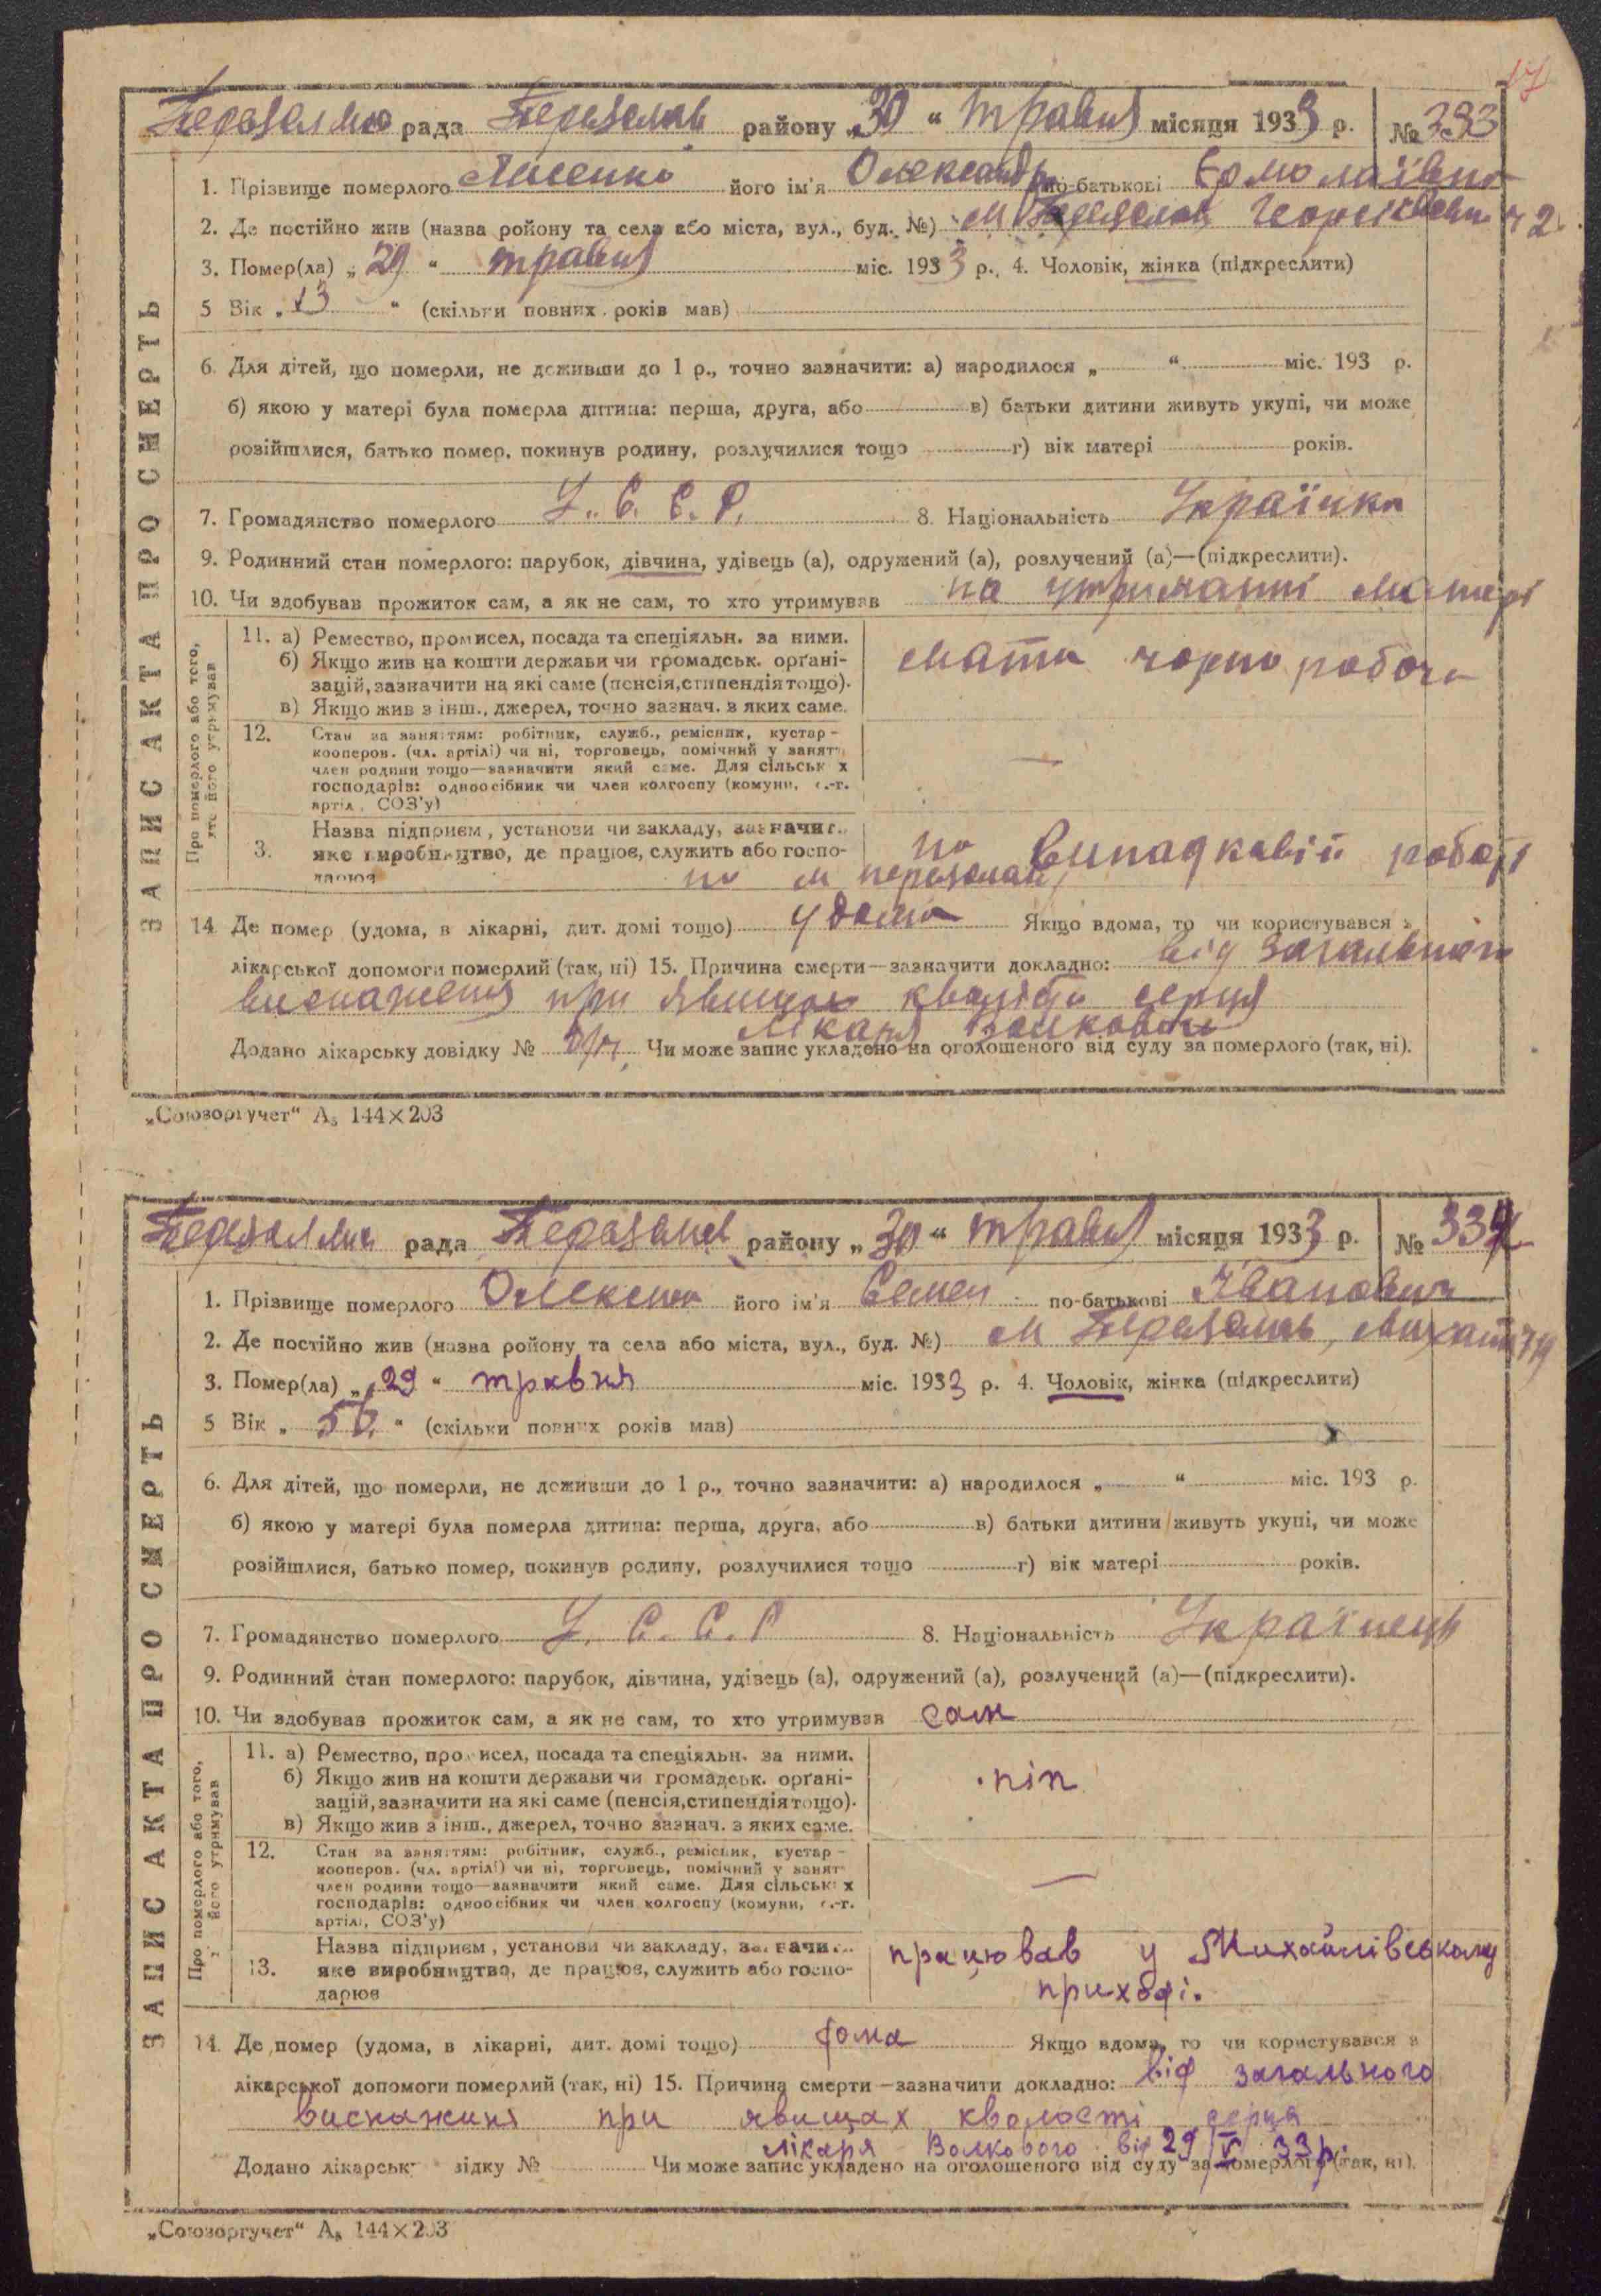 17
рада районy „30“ травня місяця 1933 р. № 333
ЗАПИС АКТА ПРО СМЕРТЬ
1. Прізвище померлого його ім'я Олександр по-батькові Ермолаївна
2. Де постійно жив (назва ройону та села або міста, вул., буд. №) м
3. Помер(ла) „29“ травня міс. 1933 р., 4. Чоловік, жінка (підкреслити)
5 Вік „13“ (скільки повних років мав)
6. Для дітей, що померли, не доживши до 1 р., точно зазначити: а) народилося „ “ міс. 193 р.
б) якою у матері була померла дитина: перша, друга, або в) батьки дитини живуть укупі, чи може
розійшлися, батько помер, покинув родину, розлучилися тощо г) вік матері років.
7. Громадянство померлого У. С. С. Р. 8. Національність Українка
9. Родинний стан померлого: парубок, дівчина, удівець (а), одружений (а), розлучений (а)—(підкреслити).
10. Чи здобував прожиток сам, а як не сам, то хто утримував на утриманні матері
Про померлого або того, хто його утримував
11. а) Ремество, промисел, посада та спеціяльн. за ними.
б) Якщо жив на кошти держави чи громадськ. орґані-
зацій, зазначити на які саме (пенсія, стипендія тощо).
в) Якщо жив з інш., джерел, точно зазнач. з яких саме.
мати чорно робоча
12. Стан за заняттям: робітник, служб., ремісник, кустар-
кооперов. (чл. артілі) чи ні, торговець, помічний у занятт
член родини тощо—зазначити який саме. Для сільськ х
господарів: одноосібник чи член колгоспу (комуни, с.-г.
артіл, СОЗ'у)
—
3. Назва підприєм, установи чи закладу, зазначит.
яке виробництво, де працює, служить або госпо-
дарює
на випадковій роботі
по м
14. Де помер (удома, в лікарні, дит. домі тощо) удома Якщо вдома, то чи користувався з
лікарської допомоги померлий (так, ні) 15. Причина смерти—зазначити докладно: від загального
виснаження при явищах кволості серця
лікаря
Додано лікарську довідку № Чи може запис укладено на оголошеного від суду за померлого (так, ні).
„Союзоргучет“ А₅ 144×203
рада району „30“ травня місяця 1933 р. № 334
ЗАПИС АКТА ПРО СМЕРТЬ
1. Прізвище померлого його ім'я Семен по-батькові Іванович
2. Де постійно жив (назва ройону та села або міста, вул., буд. №) м
3. Помер(ла) „29“ травня міс. 1933 р. 4. Чоловік, жінка (підкреслити)
5 Вік „ “ (скільки повних років мав)
6. Для дітей, що померли, не доживши до 1 р., точно зазначити: а) народилося „ “ міс. 193 р.
б) якою у матері була померла дитина: перша, друга, або в) батьки дитини живуть укупі, чи може
розійшлися, батько помер, покинув родину, розлучилися тощо г) вік матері років.
7. Громадянство померлого У. С. С. Р 8. Національність Українець
9. Родинний стан померлого: парубок, дівчина, удівець (а), одружений (а), розлучений (а)—(підкреслити).
10. Чи здобував прожиток сам, а як не сам, то хто утримував сам
Про померлого або того, його утримував
11. а) Ремество, про исел, посада та спеціяльн. за ними.
б) Якщо жив на кошти держави чи громадськ. орґані-
зацій, зазначити на які саме (пенсія, стипендія тощо).
в) Якщо жив з інш., джерел, точно зазнач. з яких саме.
піп
12. Стан за заняттям: робітник, служб., ремісник, кустар-
кооперов. (чл. артілі) чи ні, торговець, помічний у занят
член родини тощо—зазначити який саме. Для сільськ х
господарів: одноосібник чи член колгоспу (комуни, с.-г.
артілі, СОЗ'у)
—
13. Назва підприєм, установи чи закладу, зазначит.
яке виробництво, де працює, служить або госпо-
дарює
працював у Михайлівському
приході.
14. Де помер (удома, в лікарні, дит. домі тощо) дома Якщо вдома, то чи користувався з
лікарської допомоги померлий (так, ні) 15. Причина смерти—зазначити докладно: від загального
виснаження при явищах кволості серця
лікаря Волкового від 29/V 33 р.
Додано лікарськ відку № Чи може запис укладено на оголошеного від суду за померлого (так, ні).
„Союзоргучет“ А₅ 144×203